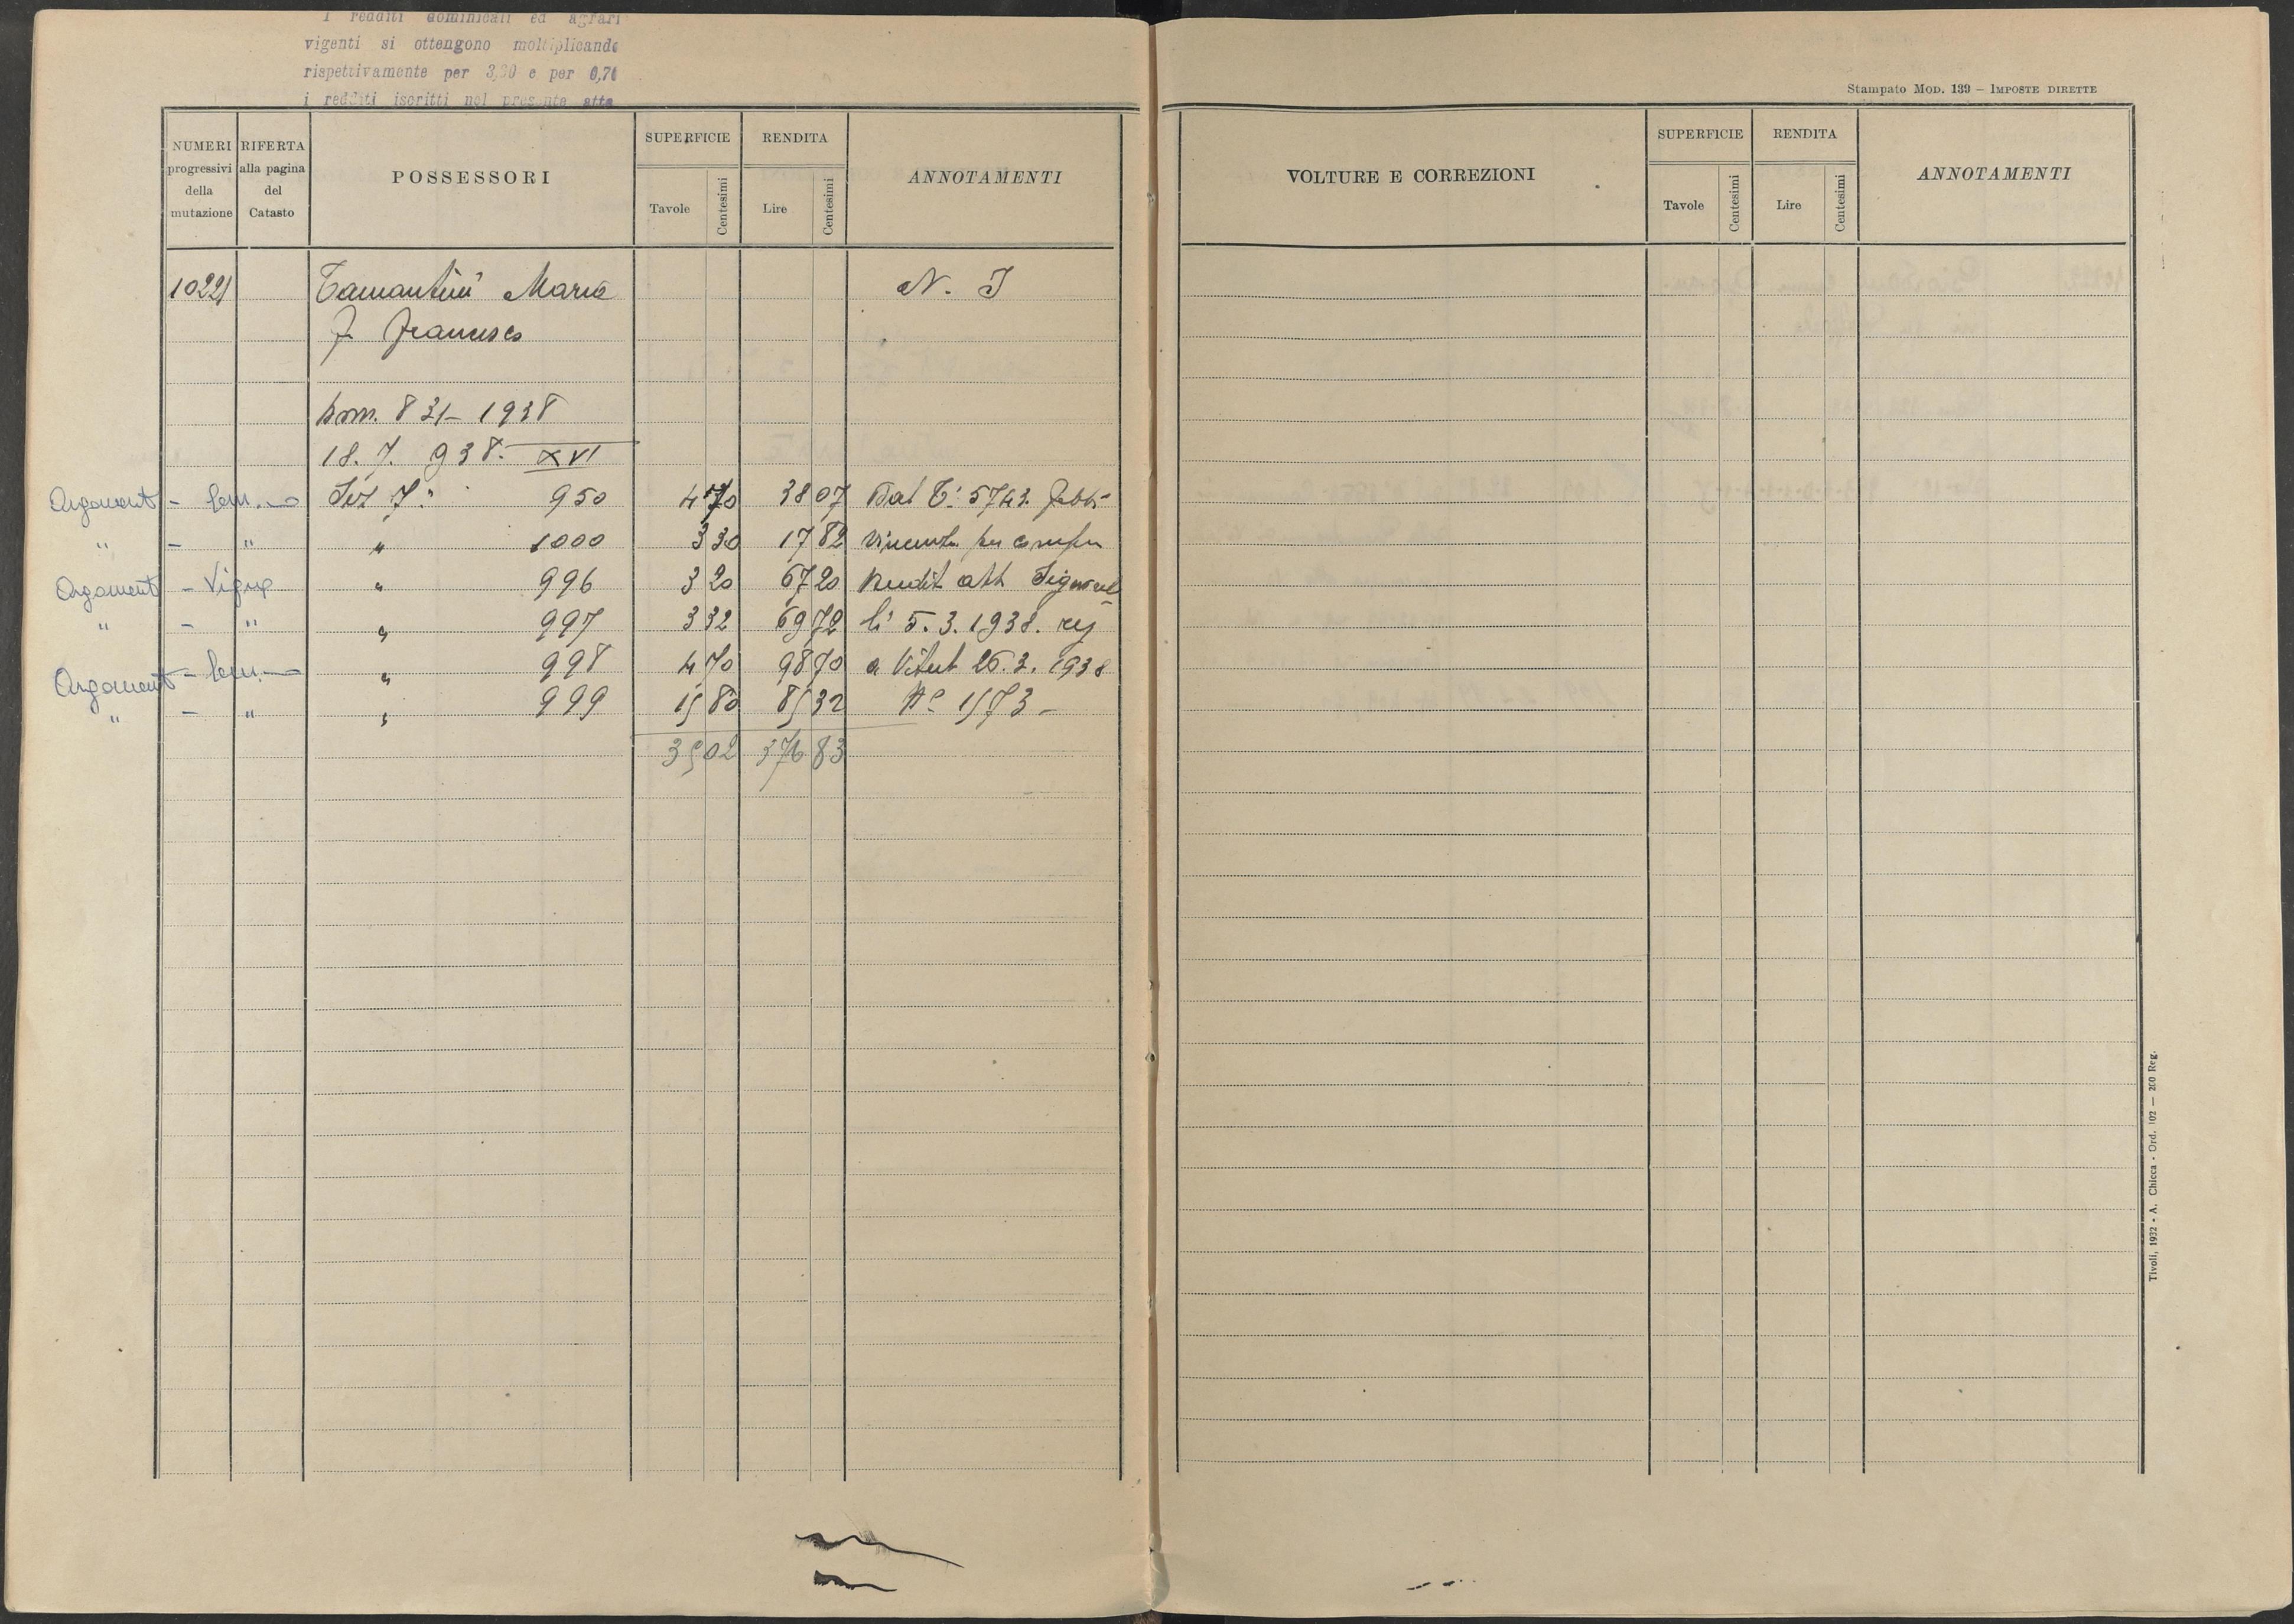 I redditi dominicali ed agrari
vigenti si ottengono moltiplicando
rispettivamente per 3,90 e per 0,70
i redditi iscritti nel presente atto
NUMERI progressivi della mutazione
RIFERTA alla pagina del Catasto
POSSESSORI
SUPERFICIE
Tavole Centesimi
RENDITA
Lire Centesimi
ANNOTAMENTI
10221 Tamantini Maria N. I
F. Francesco
Dom. 831-1938
18. 7. 938. XVI
Argoment - Sem. Sez 7ª 950 4 70 38 07 Dal T. 5743. Fabbi
" - " " 1000 3 30 17 82 Vincenti per compra
Argoment - Vigna " 996 3 20 67 20 Vendit att Signorel
" - " " 997 3 32 69 72 li 5. 3. 1938. reg
Argoment - Sem. " 998 4 70 98 70 a Viterb 26. 3. 1938
" - " " 999 15 80 85 32 Nº 1573 -
35 02 376 83
Stampato MOD. 139 - IMPOSTE DIRETTE
VOLTURE E CORREZIONI
SUPERFICIE
Tavole Centesimi
RENDITA
Lire Centesimi
ANNOTAMENTI
Tivoli, 1932 - A. Chicca - Ord. 102 — 200 Reg.